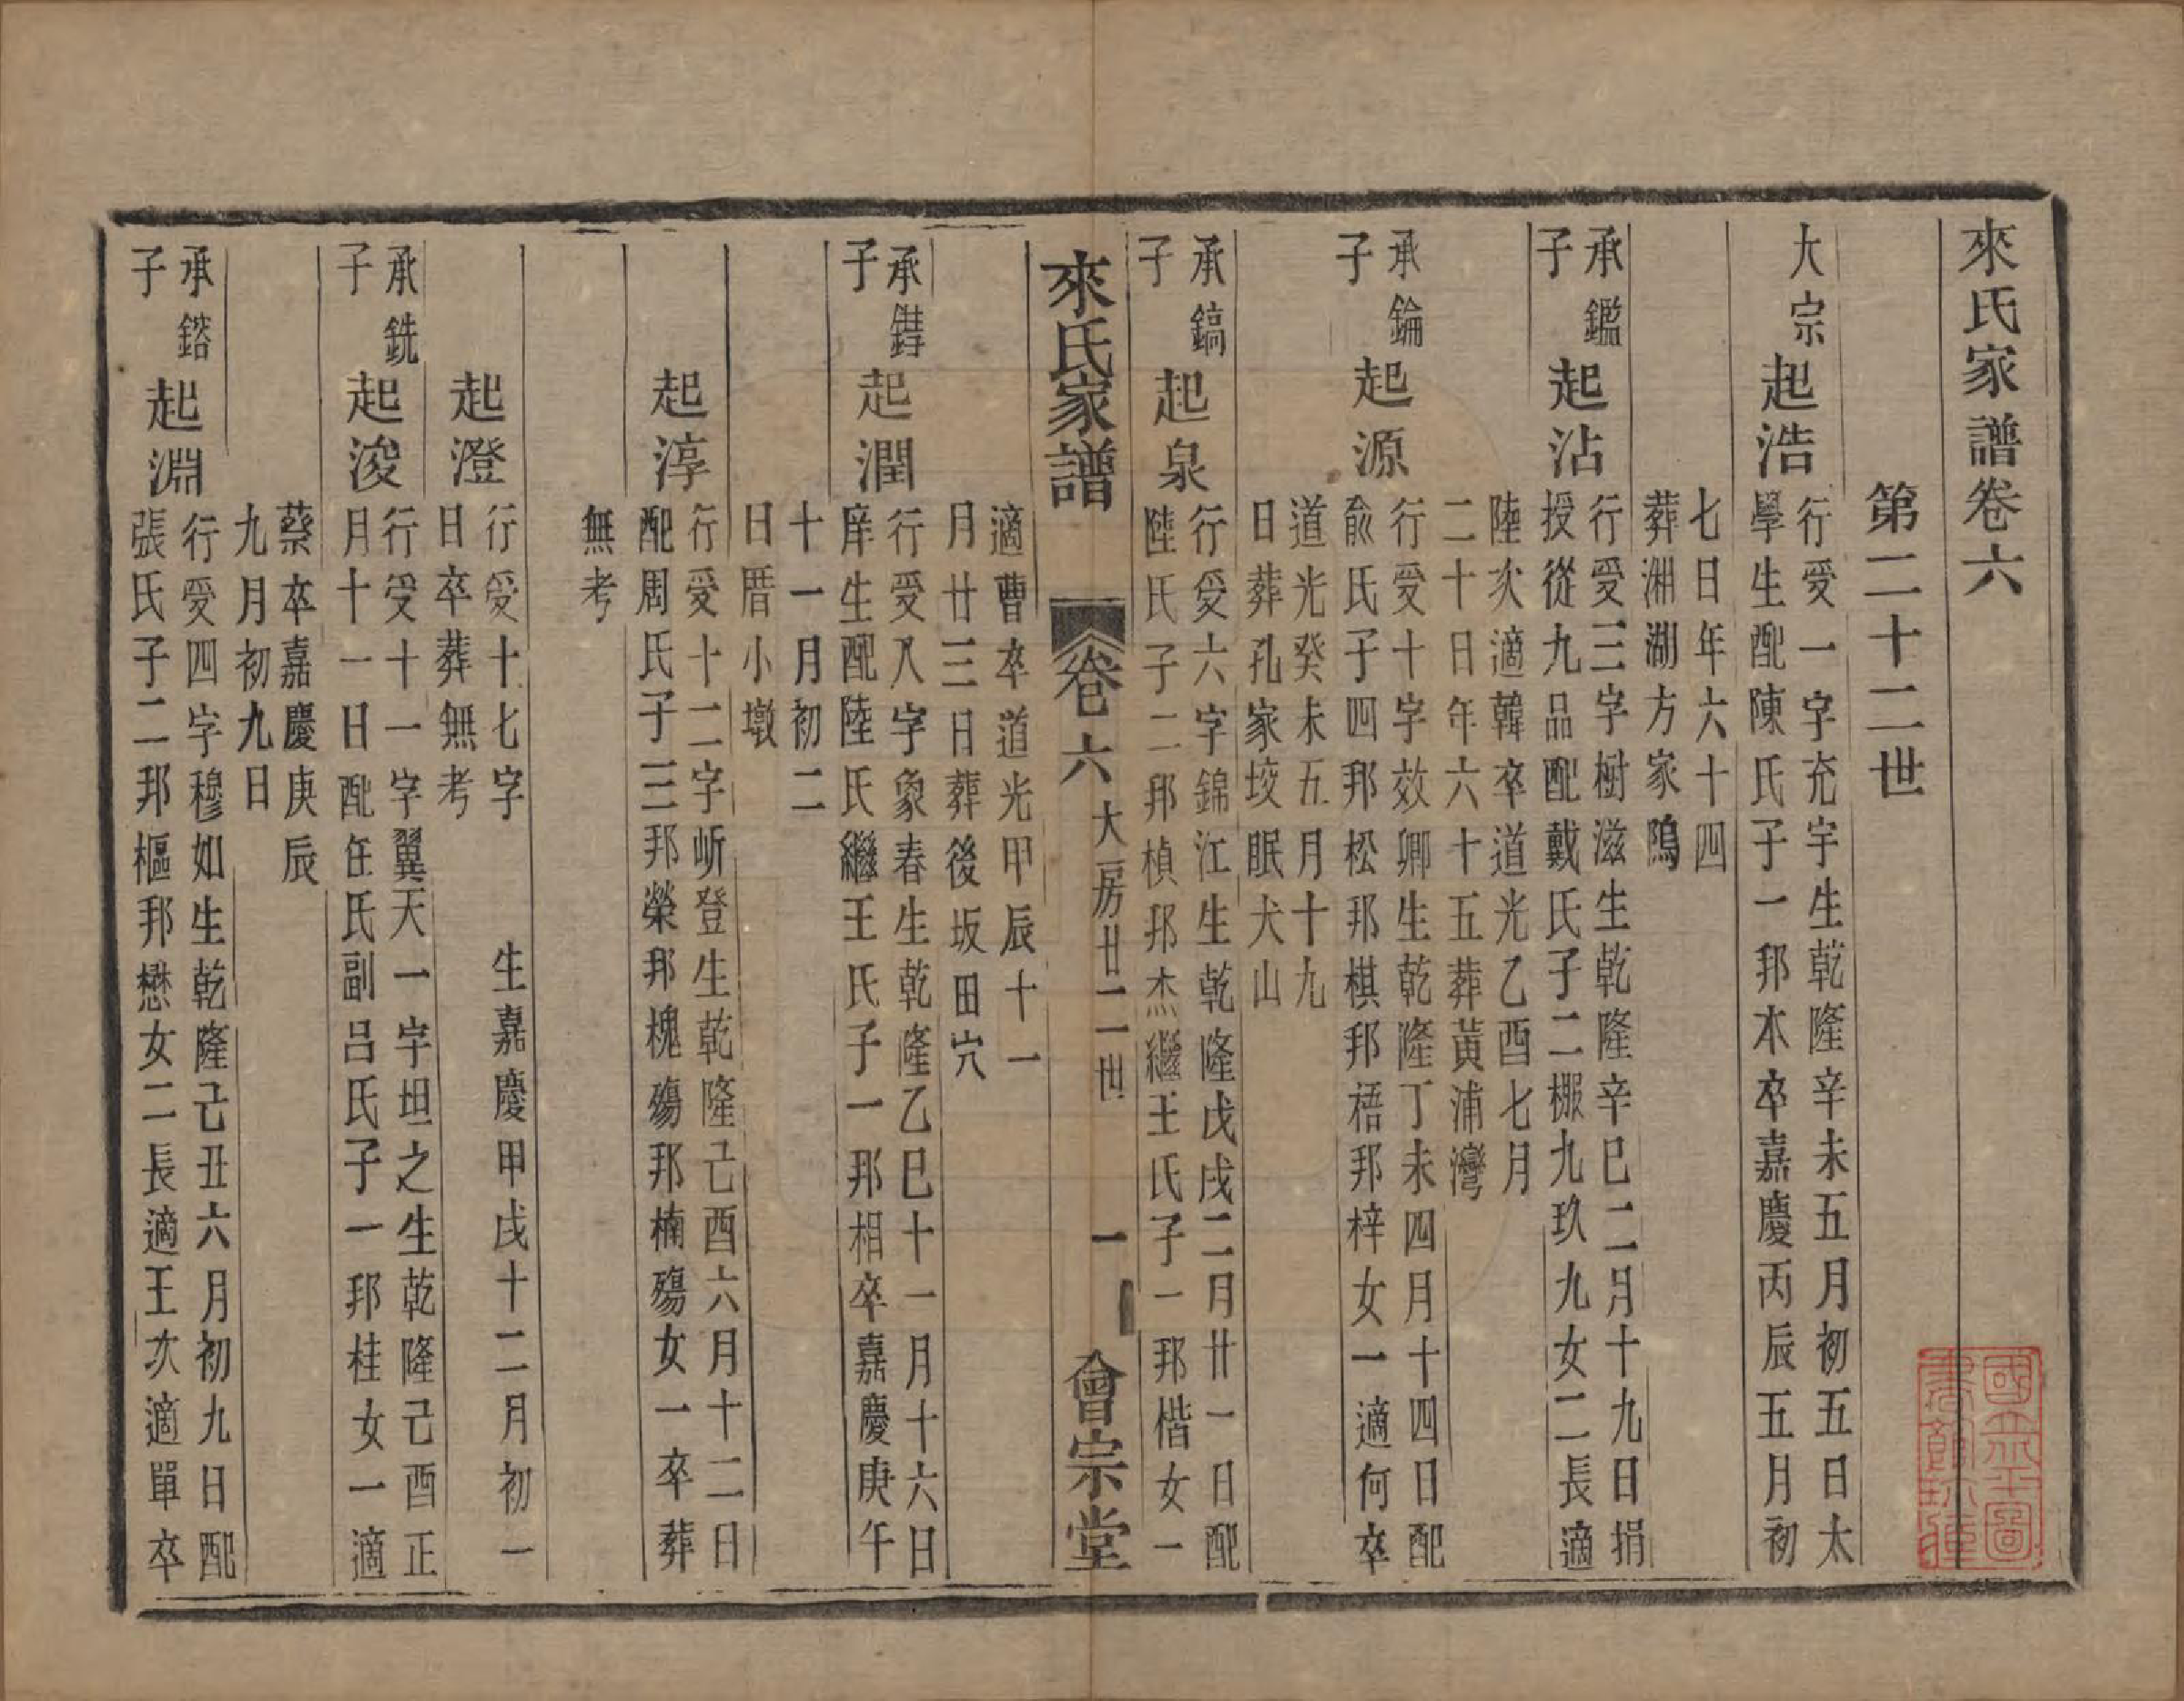 來氏家譜卷六
第二十二世
大宗
起浩
行受一字充宇生乾隆辛未五月初五日太
學生配陳氏子一邦木卒嘉慶丙辰五月初
七日年六十四
葬湘湖方家隖
承鑑
子
起沾
行受三字樹滋生乾隆辛巳二月十九日捐
授從九品配戴氏子二棴九玖九女二長適
陸次適韓卒道光乙酉七月
二十日年六十五葬黃浦灣
承錀
子
起源
行受十字效卿生乾隆丁未四月十四日配
兪氏子四邦松邦棋邦梧邦梓女一適何卒
道光癸未五月十九
日葬孔家垵眠犬山
承鎬
子
起泉
行受六字錦江生乾隆戊戌二月廿一日配
陸氏子二邦楨邦杰繼王氏子一邦楷女一
來氏家譜
卷六 大房廿二世
一
會宗堂
適曹卒道光甲辰十一
月廿三日葬後坂田穴
承鑄
子
起潤
行受八字象春生乾隆乙巳十一月十六日
庠生配陸氏繼王氏子一邦相卒嘉慶庚午
十一月初二
日厝小墩
起淳
行受十二字昕登生乾隆己酉六月十二日
配周氏子三邦榮邦槐殤邦楠殤女一卒葬
無考
起澄
行受十七字 生嘉慶甲戌十二月初一
日卒葬無考
承銑
子
起浚
行受十一字翼天一字坦之生乾隆己酉正
月十一日配任氏副呂氏子一邦桂女一適
蔡卒嘉慶庚辰
九月初九日
承鎔
子
起淵
行受四字穆如生乾隆己丑六月初九日配
張氏子二邦樞邦懋女二長適王次適單卒